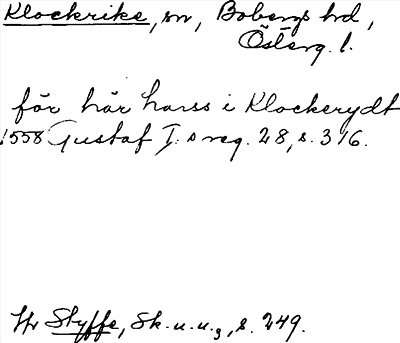 Klockrike, sn, Bobergs hd,
Österg. l.
för här harss i Klockerydt
1558 Gustaf I:s reg. 28, s. 316.
Hr Styffe, Sk.u.u.3, s. 249.